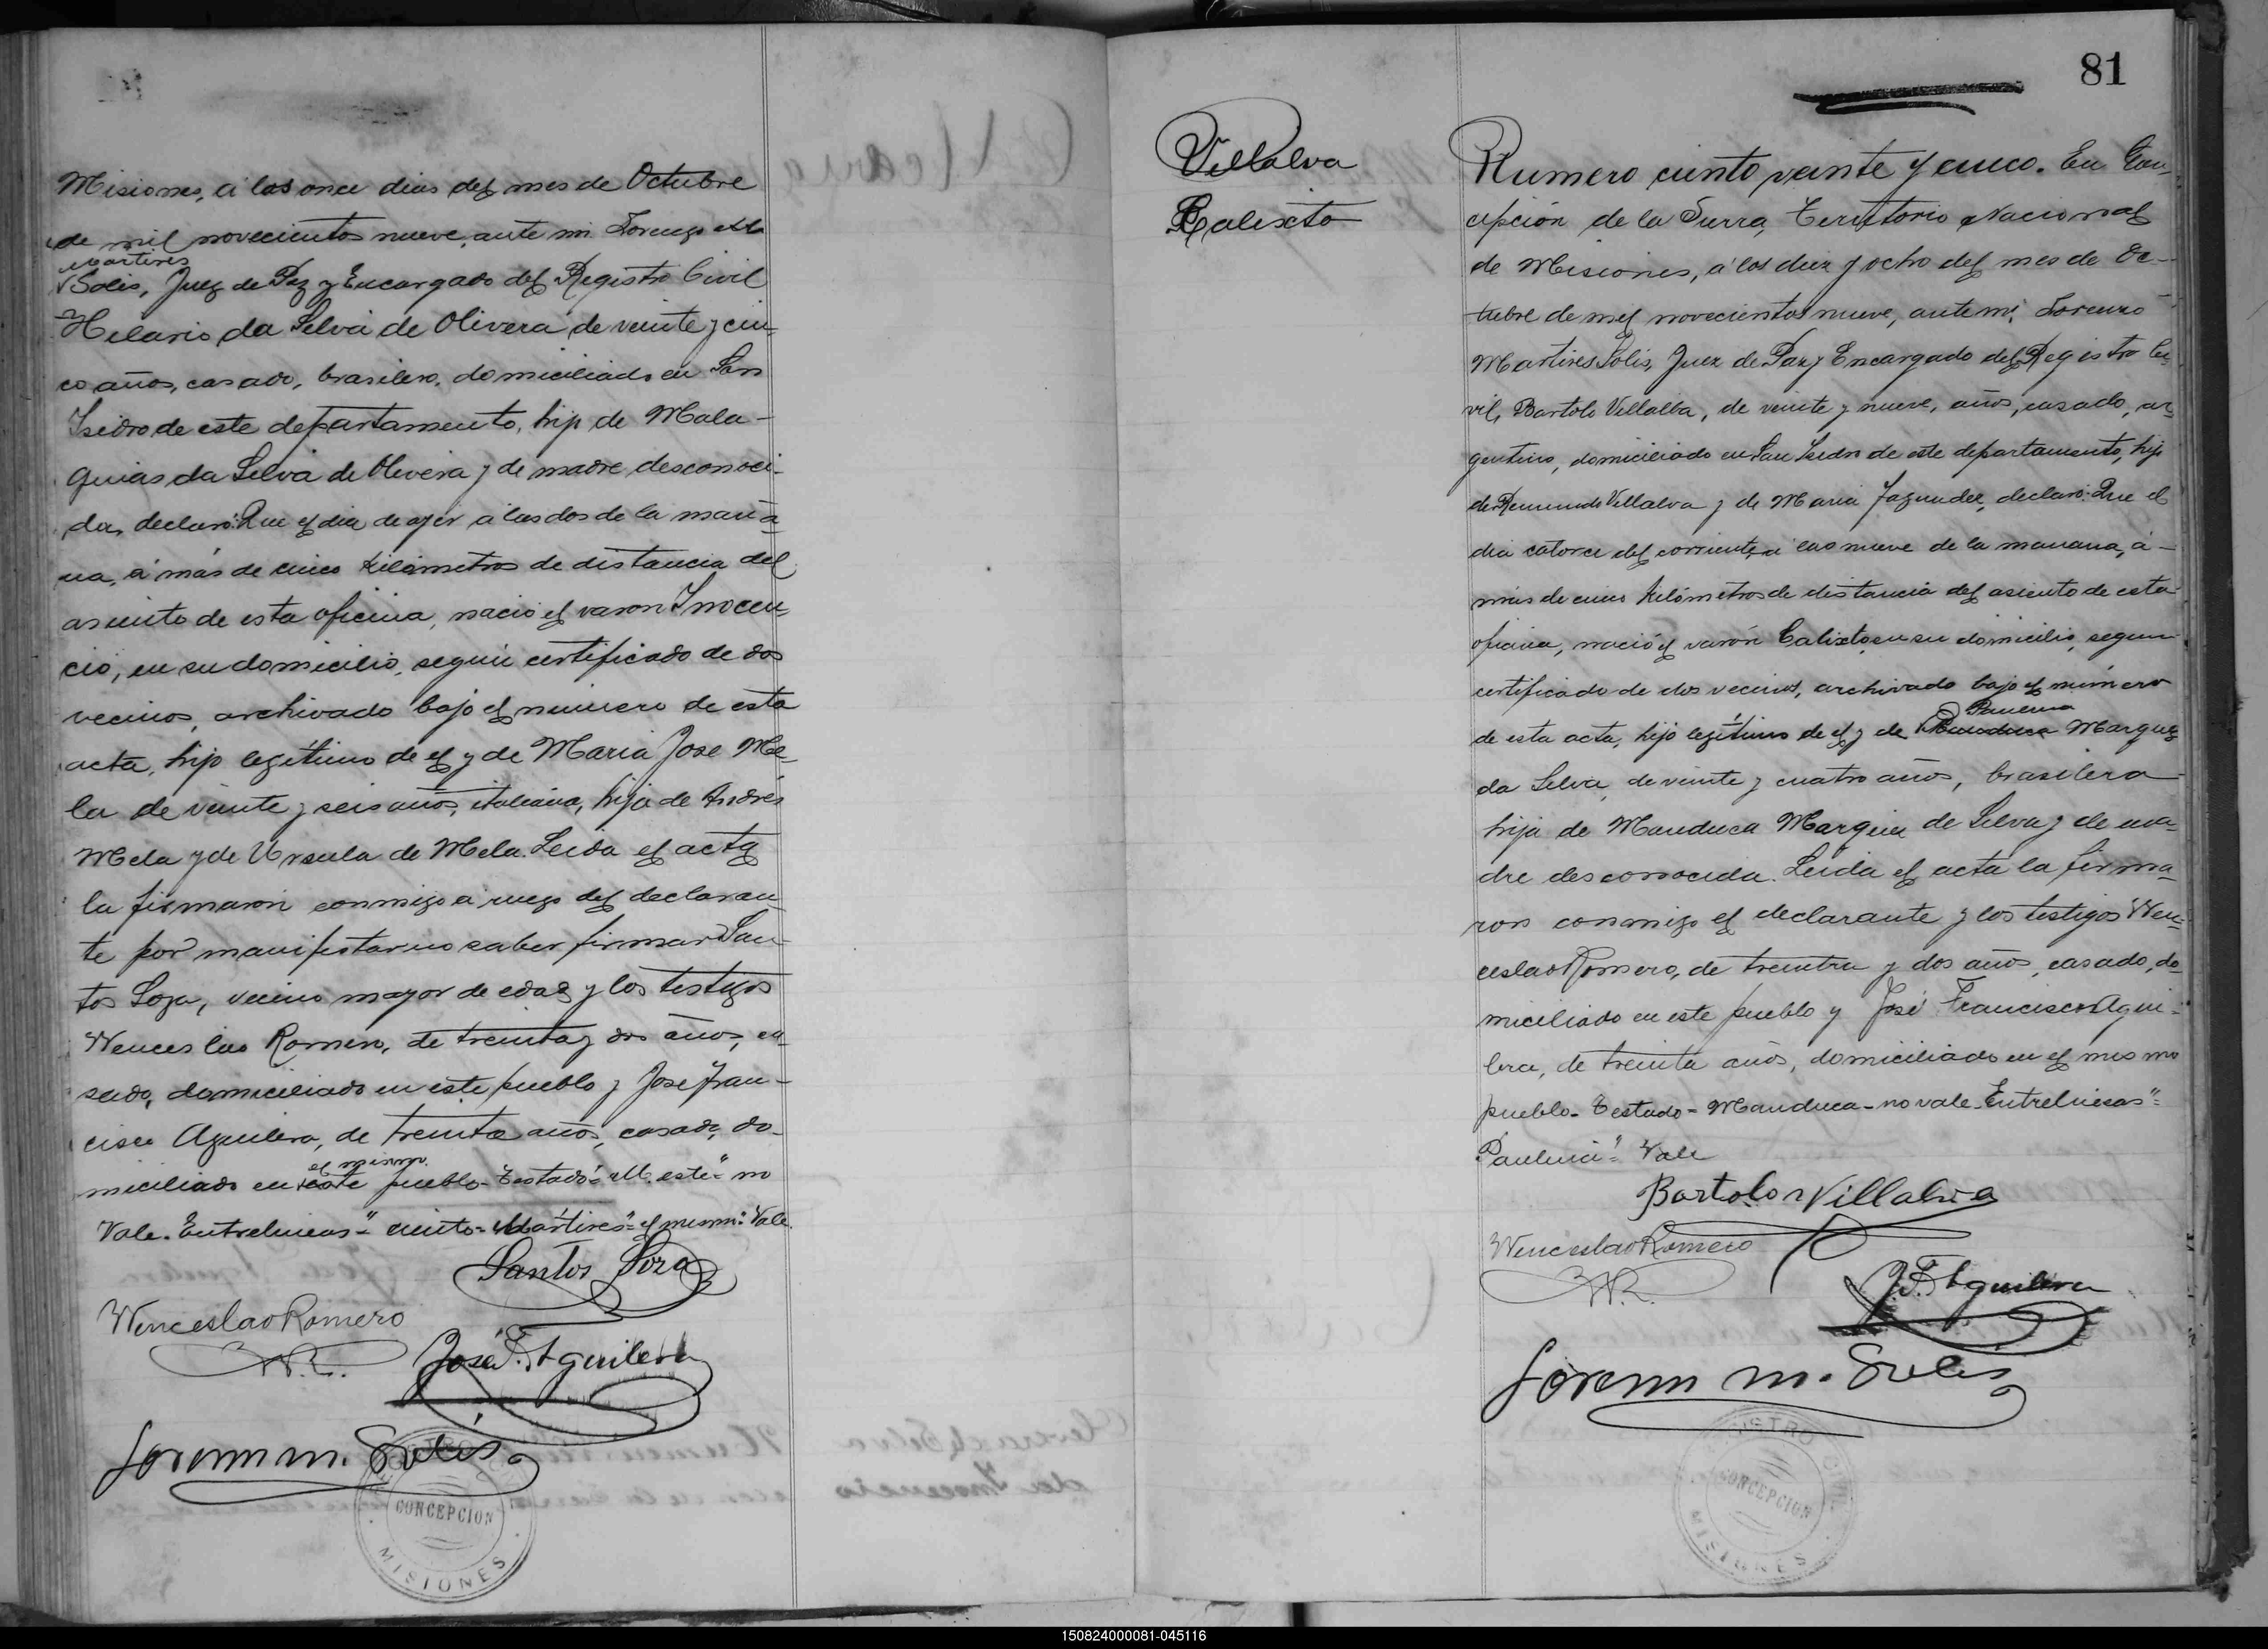 Misiones, á los once dias del mes de Octubre
de mil novecientos nueve, ante mi Lorenzo
Martires
Solis, Juez de Paz y Encargado del Registro Civil
Hilario da Selva de Olivera de veinte y cin-
co años, casado, brasilero, domiciliado en San
Isidro de este departamento, hijo de Mala-
quias da Selva de Olivera y de madre desconoci-
da, declaró: Que el dia de ayer á las dos de la maña-
na, á más de cinco kilómetros de distancia del
asiento de esta oficina, nació el varon Inocen-
cio, en su domicilio, según certificado de dos
vecinos, archivado bajo el número de esta
acta, hijo legítimo de el y de Maria Jose Me-
la de veinte y seis años, italiana, hija de Andrés
Mela y de Ursula de Mela. Leida el acta
la firmaron conmigo á ruego del declaran-
te por manifestar no saber firmar San-
tos Soza, vecino mayor de edad y los testigos
Wenceslao Romero, de treinta y dos años, ca-
sado, domiciliado en este pueblo y Jose Fran-
cisco Aguilera, de treinta años, casado, do-
el mismo
miciliado en este pueblo- Testado: M. este" no
Vale. Entrelineas-" ciento- Mártires" el mismo: Vale.
Santos Soza
Wenceslao Romero
W.R.
José F. Aguilera
Lorenzo M. Solis
REGISTRO CIVIL
CONCEPCION
MISIONES
81
Villalva
Calixto
Numero ciento veinte y cinco. En Con-
cepción de la Sierra, Territorio Nacional
de Misiones, á los diez y ocho del mes de Oc-
tubre de mil novecientos nueve, ante mi, Lorenzo
Martires Solis, Juez de Paz y Encargado del Registro Ci-
vil, Bartolo Villalba, de veinte y nueve, años, casado, ar-
gentino, domiciliado en San Isidro de este departamento, hijo
de Remundo Villalva y de Maria Fagundez, declaró: Que el
dia catorce del corriente, á las nueve de la manana, á
más de cinco kilómetros de distancia del asiento de esta
oficina, nació el varón Calixto, en su domicilio, segun
certificado de dos vecinos, archivado bajo el número
Paulina
de esta acta, hijo legítimo de el y de Manduca Marques
da Selva, de veinte y cuatro años, brasilera
hija de Manduca Marques de Selva y de ma-
dre desconocida. Leida el acta la firma-
ron conmigo el declarante y los testigos Wen-
ceslao Romero, de treintra y dos años, casado, do-
miciliado en este pueblo y José Francisco Agui-
lera, de treinta años, domiciliado en el mismo
pueblo- Testado- Manduca- no vale- Entrelineas"-
Paulina" Vale
Bartolo Villalva
Wenceslao Romero
W.R.
J.F. Aguilera
Lorenzo M. Solis
REGISTRO CIVIL
CONCEPCION
MISIONES
150824000081-045116